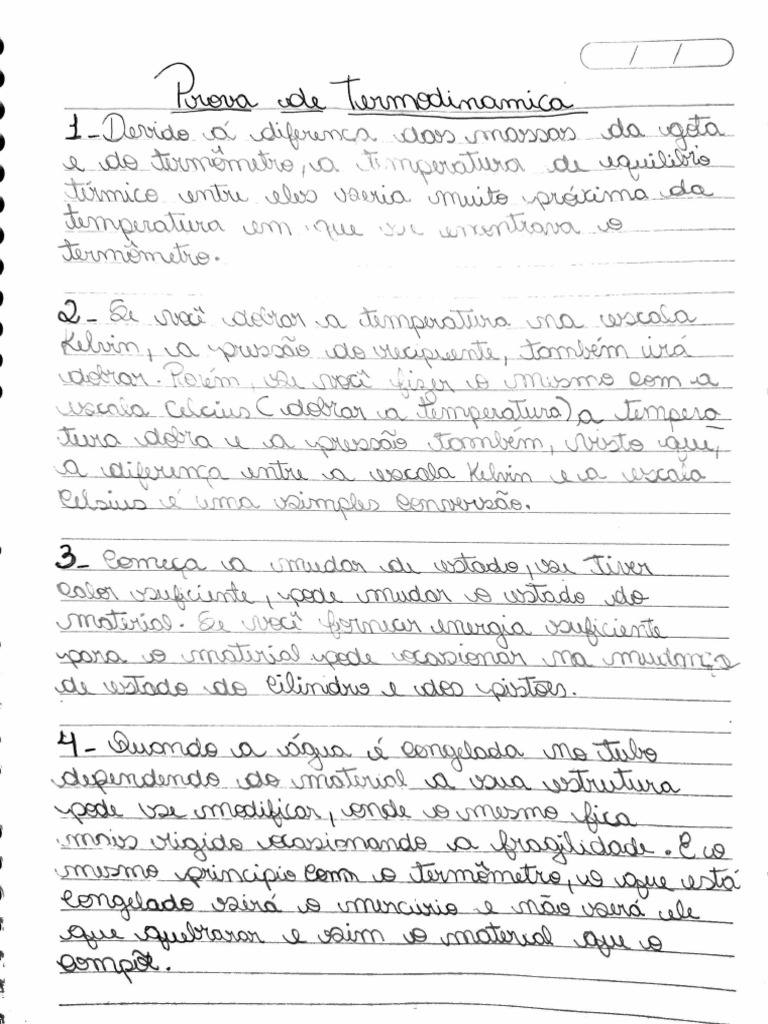 / /
Prova de Termodinamica
1- Devido á diferença das massas da gota
e do termômetro, a temperatura de equilibrio
térmico entre eles seria muito próxima da
temperatura em que se encontrava o
termômetro.
2- Se você dobrar a temperatura na escala
Kelvin, a pressão do recipiente, também irá
dobrar. Porém, se você fizer o mesmo com a
escala Celcius (dobrar a temperatura) a tempera
tura dobra e a pressão também, visto que,
a diferença entre a escala Kelvin e a escala
Celsius é uma simples conversão.
3- Começa a mudar de estado, se tiver
calor suficiente, pode mudar o estado do
material. Se você fornecer energia suficiente
para o material pode ocasionar na mudança
de estado do cilindro e dos pistões.
4- Quando a água é congelada no tubo
dependendo do material a sua estrutura
pode se modificar, onde o mesmo fica
mais rigido ocasionando a fragilidade. E o
mesmo principio com o termômetro, o que está
congelado será o mercúrio e não será ele
que quebrarar e sim o material que o
compõe.